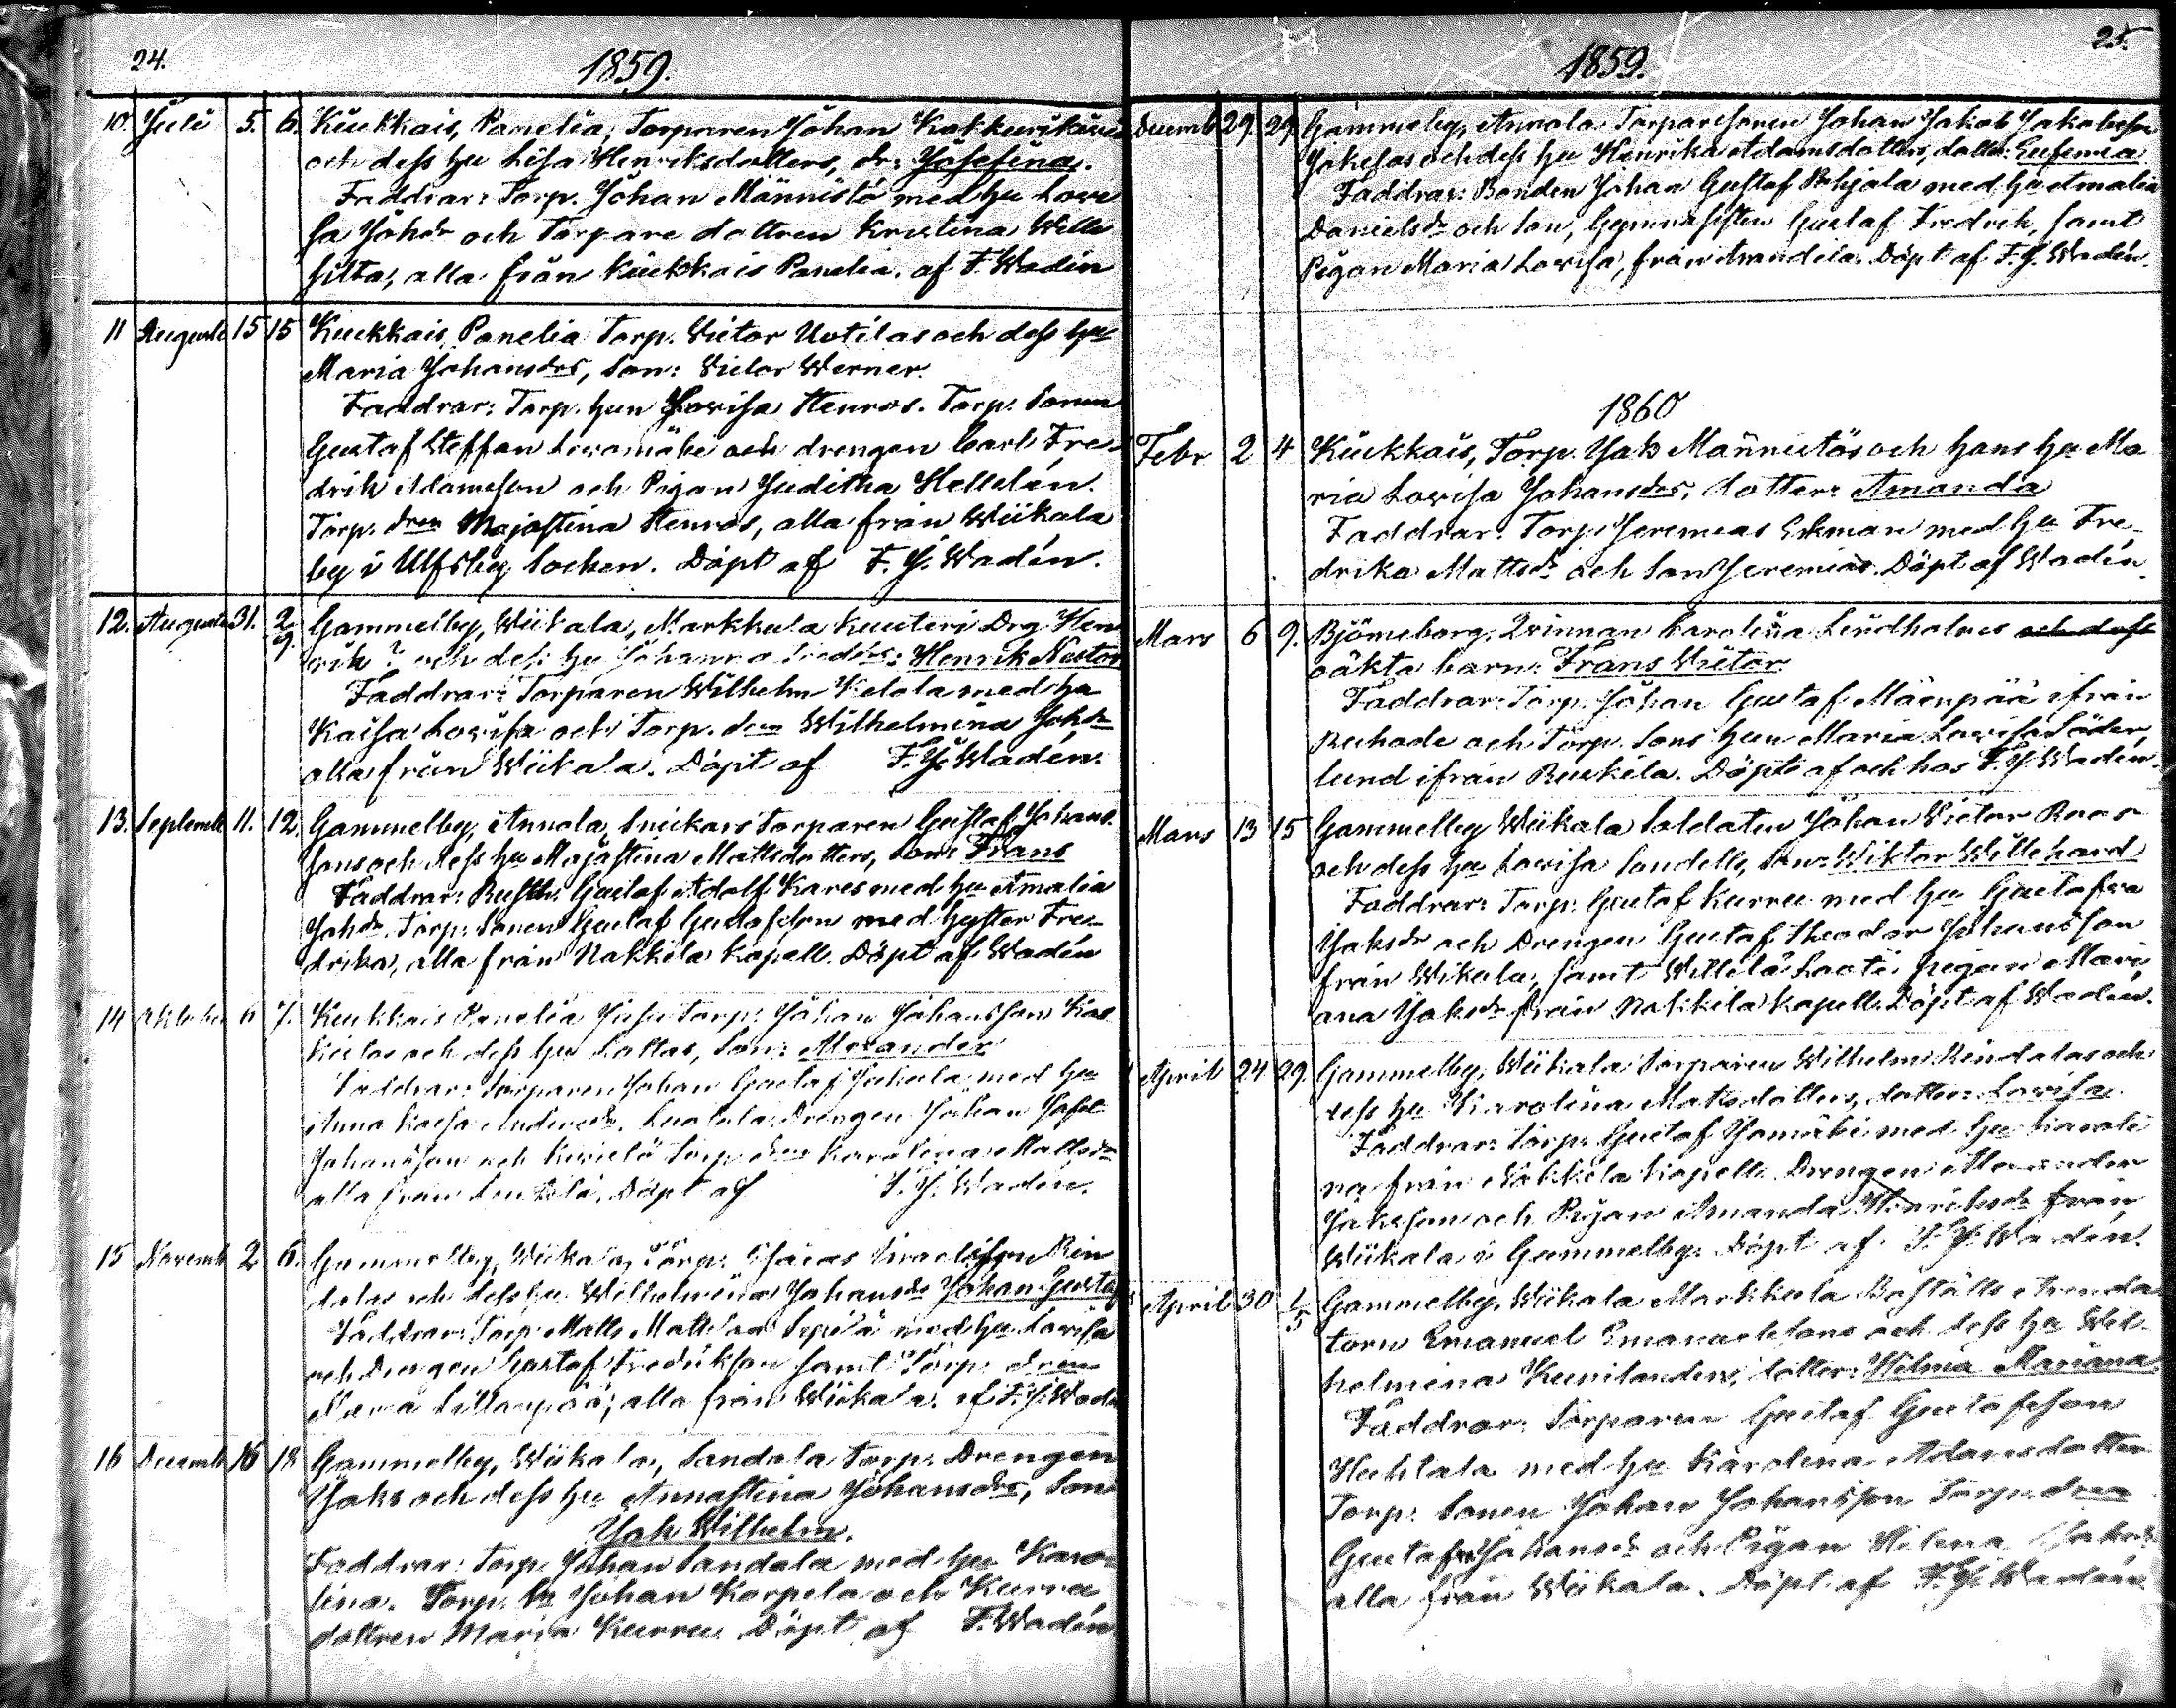 24.
1859.
10. Juli 5. 6. Kiukkais, Panelia, Torparen Johan
och dess hu Lisa Henriksdotters, dr: Josefina.
Faddrar: Torp. Johan Männistö med hu Lovi
sa Johdr och Torpare dottren Kristina Ville
silta, alla från Kiukkais Panelia. af F. Wadén
11 Augusti 15 15 Kiukkais, Panelia Torp. Victor Uotilas och dess hu
Maria Johansdrs, Son: Victor Werner.
Faddrar: Torp. hun Lovisa Stenros. Torp. Sonen
Gustaf Steffan och drengen Carl Fre-
drik Adamsson och Pigan Juditha Hellelén.
Torp. dren Majastina Stenros, alla från Wiikala
by i Ulfsby Socken. Döpt af F. J. Wadén.
12. Augusti 31. 2/9. Gammelby, Wiikala, Markkula Kuuteri Drg Hen
rik? och dess hu Johanna Henrik Nestor
Faddrar: Torparen Wilhelm Ketola med hu
Kaisa Lovisa och Torp. dren Wilhelmina Johdr
alla från Wiikala. Döpt af F. J. Wadén.
13. Septemb 11. 12. Gammelby, Annola, Snickars Torparen Gustaf Johans-
sons och dess hu Majastina Mattsdotters, son: Frans
Faddrar: Rusth. Gustaf Adolf Kares med hu Amalia
Johdr. Torp. Sonen Gustaf Gustafsson med Hyster Fre-
drika, alla från Nakkila Kapell. Döpt af Wadén
14 Oktober 6 7. Kiukkais Panelia Torp: Johan Johansson
och dess hu Lottas, Son: Alexander
Faddrar: Torparen Johan Gustaf med hu
Anna Kaisa Drengen Johan
Johansson och Torp. dren Karolina Mattsdr
alla från Döpt af F. J. Wadén.
15 Novemb 2 6. Gammelby, Wiikala, Torp: Esaias Israelsson Rin
dalas och dess hu Wilhelmina Johansdr Johan Gustaf
Faddrar: Torp. Matts Mattsson Seppälä med hu Lovisa
och Drengen Gustaf Fredriksson samt Torp. dren
Maria alla från Wiikala. af F. J. Wadén
16 Decemb 16 18 Gammelby, Wiikala, Sandala Torp: Drengen
Jaks och dess hu Annastina Johansdrs, Son
Jak Wilhelm.
Faddrar: Torp. Johan Sandala med hu Karo-
lina. Torp. Johan Korpela och Kurru
dottren Maria Kurru Döpt af F. Wadén
25.
1859.
Decemb 29 29. Gammelby, Annola Torparesonen Johan Jakob Jakobsson
och dess hu Henrika Adamsdotters, dotter: Eufemia
Faddrar: Bonden Johan Gustaf Pohjala med hu Amalia
Danielsdr och Son, Gymnasisten Gustaf Fredrik, samt
Pigan Maria Lovisa, från Anndila. Döpt af F. J. Wadén.
1860
Febr 2 4 Kiukkais, Torp. Jak Männistös och hans hu Ma
ria Lovisa Johansdrs, dotter: Amanda
Faddrar: Torp: Jeremias Ekman med hu Fre-
drika Mattsdr och Son Jeremias. Döpt af Wadén.
Mars 6 9. Björneborg, Qvinnan Karolina Lindholms och dess
oäkta barn: Frans Victor
Faddrar: Torp: Johan Gustaf Mäenpää ifrån
Ruhade och Torp. Sons hun Maria Lovisa Söder
lund ifrån Ruskila. Döpt af och hos F. J. Wadén.
Mars 13 15 Gammelby Wiikala Soldaten Johan Victor Roos
och dess hu Lovisa Sandell, Son: Wiktor Willehard
Faddrar: Torp: Gustaf Kurru med hu Gustafva
Jaksdr och Drengen Gustaf Theodor Johansson
från Wikala, samt Willilä Pigan Mari
ana Jaksdr från Nakkila Kapell. Döpt af Wadén.
April 24 29. Gammelby, Wiikala Torparen Wilhelm Rindalas och
dess hu Karolina Matsdotters, dotter: Lovisa
Faddrar: Torp: Gustaf med hu Karoli
na från Nakkila Kapell. Drengen Alexander
Jaksson och Pigan Amanda Henriksdr från
Wiikala i Gammelby. Döpt af F. J. Wadén.
April 30 1/5 Gammelby, Wiikala Markkula Boställs Arenda
torn Emanuel Emanuelssons och dess hu Wil-
helmina dotter: Hilma Mariana.
Faddrar: Torparen Gustaf Gustafsson
Huhtala med hu Karolina Adamsdotter
Torp: Sonen Johan Johansson Torp. dren
Gustafva Johansdr och Pigan Helena Jaksdr
alla från Wiikala. Döpt af F. J. Wadén